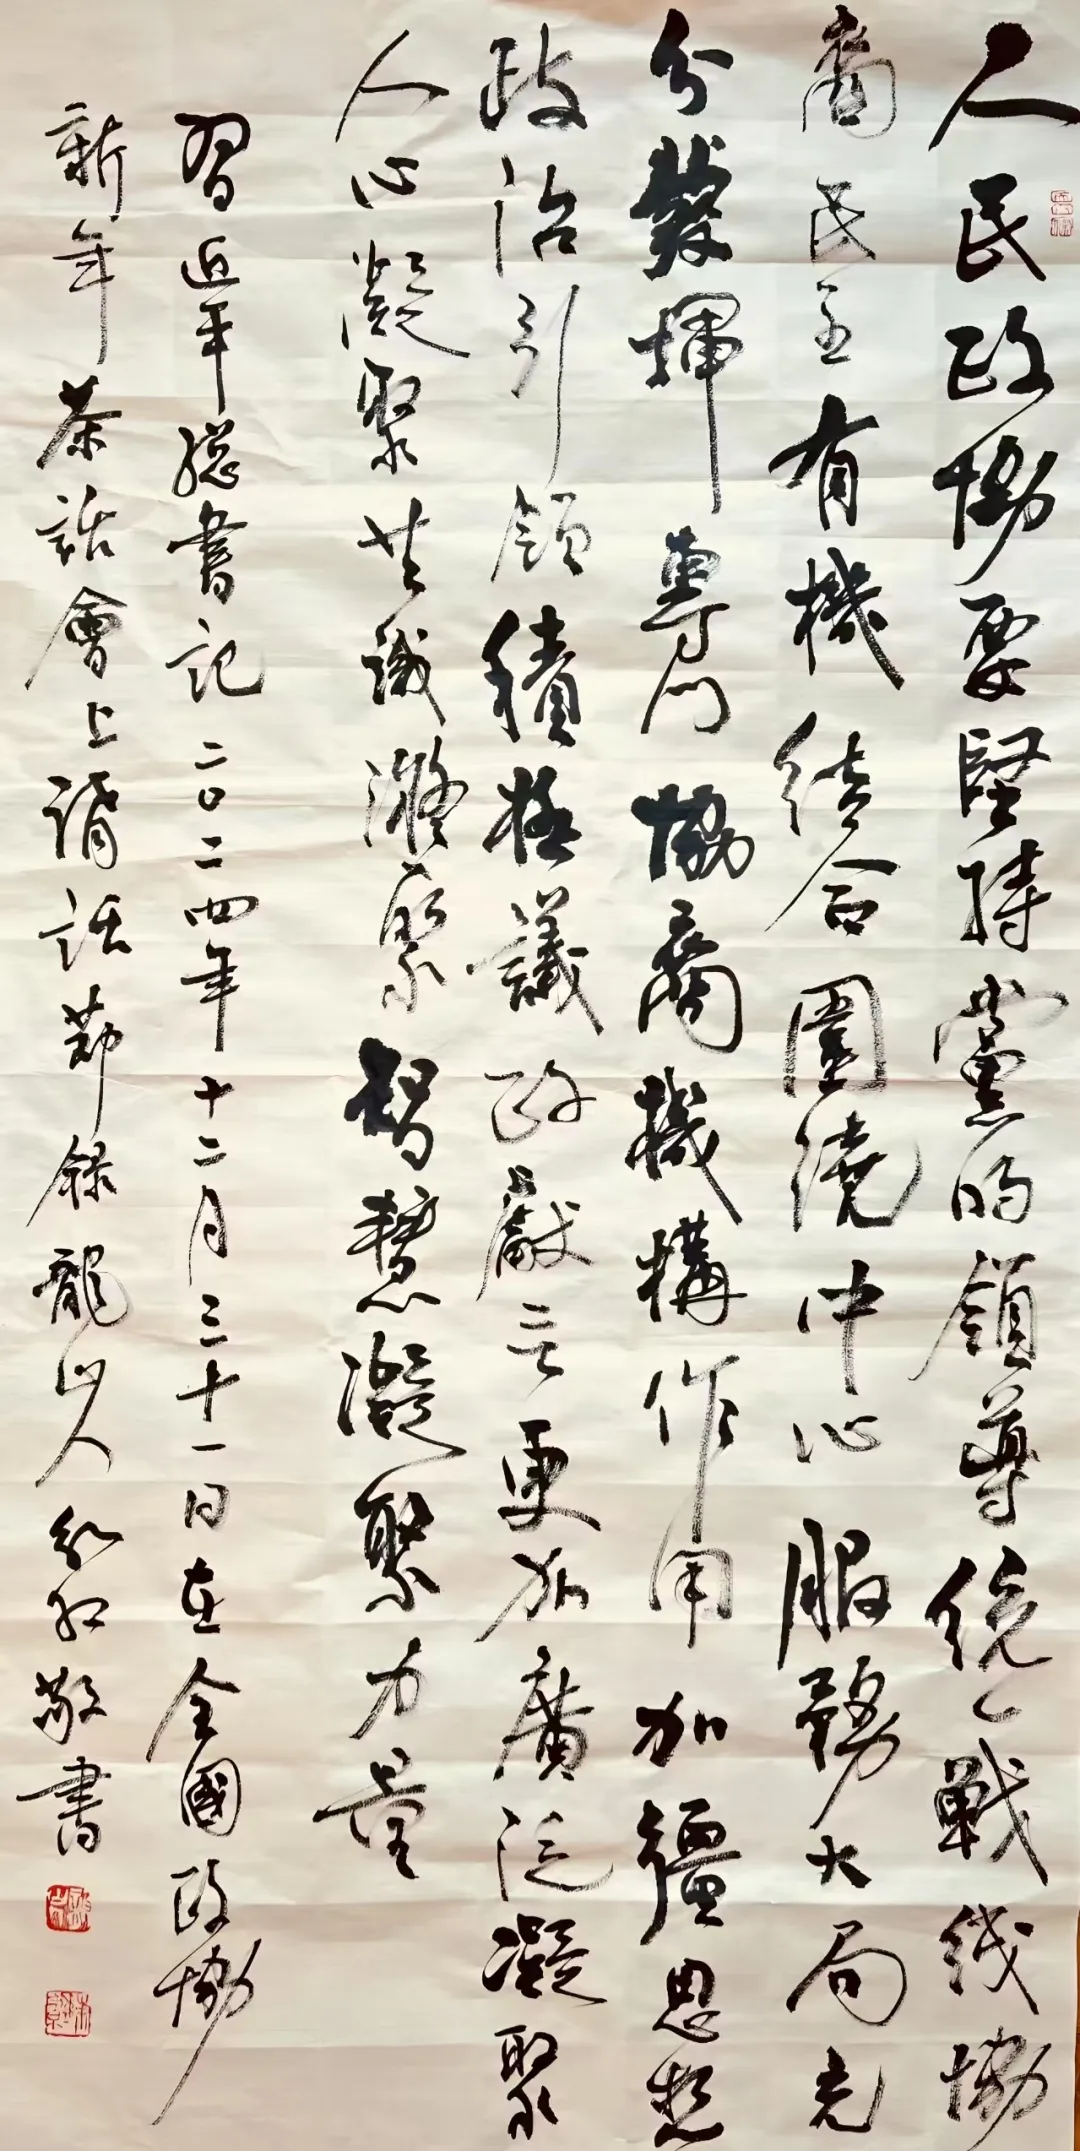 人民政協要堅持黨的領導統一戰线協
商民主有機結合圍繞中心服務大局充
分發揮專門協商機構作用加彊思想
政治引領積極議政獻言更加廣泛凝聚
人心凝聚共識凝聚智慧凝聚力量
習近平總書記二〇二四年十二月三十一日在全國政協
新年茶話會上講話節録龍山人敬書